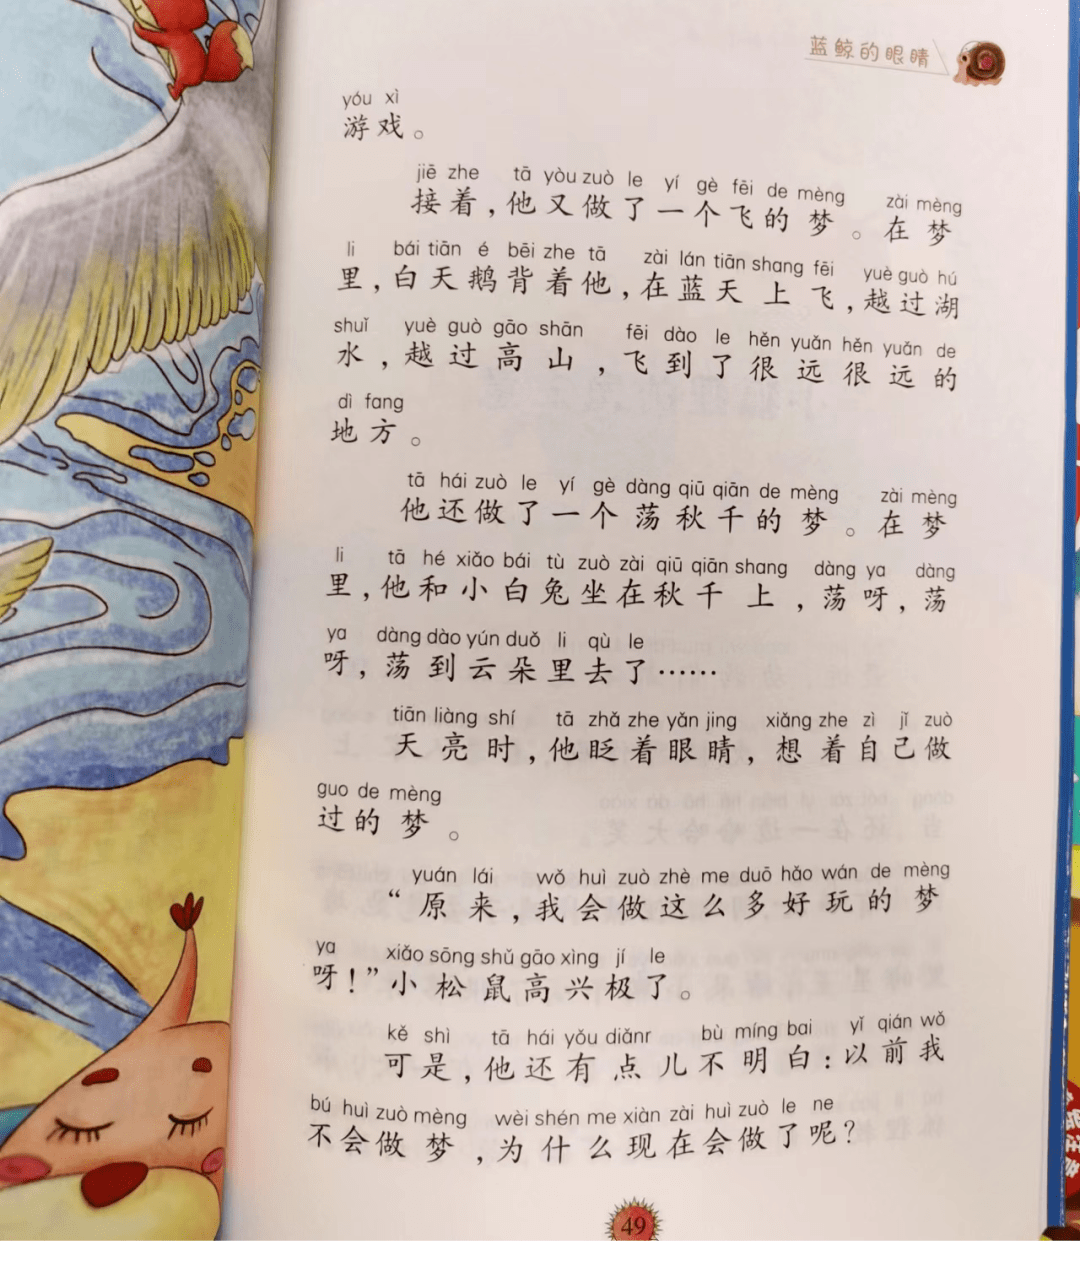 蓝鲸的眼睛
yóu xì
游戏。
jiē zhe tā yòu zuò le yí gè fēi de mèng zài mèng
接着,他又做了一个飞的梦。在梦
li bái tiān é bēi zhe tā zài lán tiān shang fēi yuè guò hú
里,白天鹅背着他,在蓝天上飞,越过湖
shuǐ yuè guò gāo shān fēi dào le hěn yuǎn hěn yuǎn de
水,越过高山,飞到了很远很远的
dì fang
地方。
tā hái zuò le yí gè dàng qiū qiān de mèng zài mèng
他还做了一个荡秋千的梦。在梦
li tā hé xiǎo bái tù zuò zài qiū qiān shang dàng ya dàng
里,他和小白兔坐在秋千上,荡呀,荡
ya dàng dào yún duǒ li qù le
呀,荡到云朵里去了……
tiān liàng shí tā zhǎ zhe yǎn jing xiǎng zhe zì jǐ zuò
天亮时,他眨着眼睛,想着自己做
guo de mèng
过的梦。
yuán lái wǒ huì zuò zhè me duō hǎo wán de mèng
“原来,我会做这么多好玩的梦
ya xiǎo sōng shǔ gāo xìng jí le
呀!”小松鼠高兴极了。
kě shì tā hái yǒu diǎnr bù míng bai yǐ qián wǒ
可是,他还有点儿不明白:以前我
bú huì zuò mèng wèi shén me xiàn zài huì zuò le ne
不会做梦,为什么现在会做了呢?
49